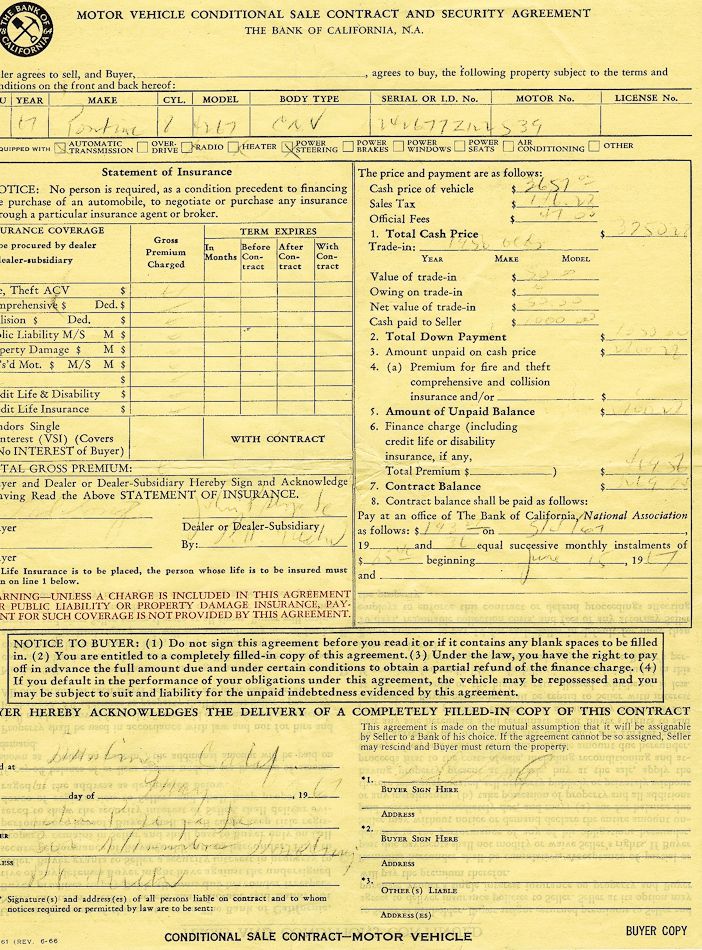 THE BANK OF CALIFORNIA
1864
MOTOR VEHICLE CONDITIONAL SALE CONTRACT AND SECURITY AGREEMENT
THE BANK OF CALIFORNIA, N.A.
ler agrees to sell, and Buyer, , agrees to buy, the following property subject to the terms and
nditions on the front and back hereof:
U YEAR MAKE CYL. MODEL BODY TYPE SERIAL OR I.D. No. MOTOR No. LICENSE No.
Pontiac
QUIPPED WITH AUTOMATIC TRANSMISSION OVER-DRIVE RADIO HEATER POWER STEERING POWER BRAKES POWER WINDOWS POWER SEATS AIR CONDITIONING OTHER
Statement of Insurance
OTICE: No person is required, as a condition precedent to financing
e purchase of an automobile, to negotiate or purchase any insurance
rough a particular insurance agent or broker.
URANCE COVERAGE
be procured by dealer
dealer-subsidiary
Gross Premium Charged
TERM EXPIRES
In Months Before Contract After Contract With Contract
e, Theft ACV $
mprehensive $ Ded. $
lision $ Ded. $
blic Liability M/S M $
perty Damage $ M $
s'd Mot. $ M/S M $
$
dit Life & Disability $
dit Life Insurance $
ndors Single
nterest (VSI) (Covers
No INTEREST of Buyer)
WITH CONTRACT
TAL GROSS PREMIUM:
uyer and Dealer or Dealer-Subsidiary Hereby Sign and Acknowledge
aving Read the Above STATEMENT OF INSURANCE.
uyer Dealer or Dealer-Subsidiary
By:
uyer
Life Insurance is to be placed, the person whose life is to be insured must
n on line 1 below.
ARNING—UNLESS A CHARGE IS INCLUDED IN THIS AGREEMENT
R PUBLIC LIABILITY OR PROPERTY DAMAGE INSURANCE, PAY-
NT FOR SUCH COVERAGE IS NOT PROVIDED BY THIS AGREEMENT.
The price and payment are as follows:
Cash price of vehicle $
Sales Tax $
Official Fees $
1. Total Cash Price $
Trade-in: 1950 Olds
YEAR MAKE MODEL
Value of trade-in $
Owing on trade-in $
Net value of trade-in $
Cash paid to Seller $ 1000
2. Total Down Payment $
3. Amount unpaid on cash price $
4. (a) Premium for fire and theft
comprehensive and collision
insurance and/or $
5. Amount of Unpaid Balance $
6. Finance charge (including
credit life or disability
insurance, if any,
Total Premium $ ) $
7. Contract Balance $
8. Contract balance shall be paid as follows:
Pay at an office of The Bank of California, National Association
as follows: $ on ,
19 and 36 equal successive monthly instalments of
$ beginning June 15, 1967
and
NOTICE TO BUYER: (1) Do not sign this agreement before you read it or if it contains any blank spaces to be filled
in. (2) You are entitled to a completely filled-in copy of this agreement. (3) Under the law, you have the right to pay
off in advance the full amount due and under certain conditions to obtain a partial refund of the finance charge. (4)
If you default in the performance of your obligations under this agreement, the vehicle may be repossessed and you
may be subject to suit and liability for the unpaid indebtedness evidenced by this agreement.
YER HEREBY ACKNOWLEDGES THE DELIVERY OF A COMPLETELY FILLED-IN COPY OF THIS CONTRACT
This agreement is made on the mutual assumption that it will be assignable
by Seller to a Bank of his choice. If the agreement cannot be so assigned, Seller
may rescind and Buyer must return the property.
d at
day of , 1967
ER
ESS
Signature(s) and address(es) of all persons liable on contract and to whom
notices required or permitted by law are to be sent:
*1.
BUYER SIGN HERE
ADDRESS
*2.
BUYER SIGN HERE
ADDRESS
*3.
OTHER(S) LIABLE
ADDRESS(ES)
61 (REV. 6-66
CONDITIONAL SALE CONTRACT—MOTOR VEHICLE
BUYER COPY